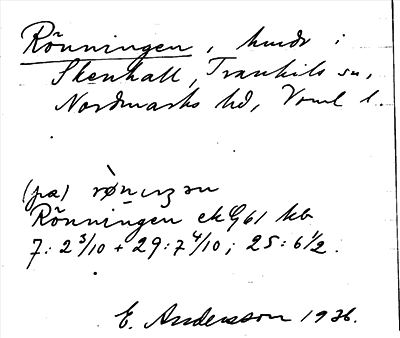 Rönningen, hmdr i
Skenhall, Trankils sn,
Nordmarks hd, Vrml l.
(på) 
Rönningen ek G61 kb
7:2 3/10 + 29:7 4/10; 25:6 1/2.
E. Andersson 1936.